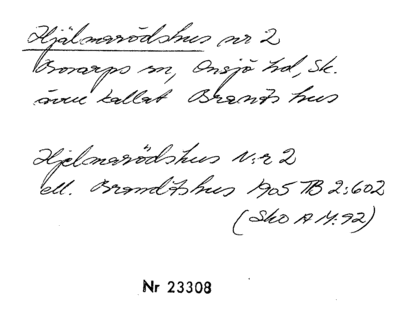 Hjälmarödshus nr 2
Bosarps sn, Onsjö hd, Sk.
även kallat Brantshus
Hjelmarödshus N:r 2
ell. Brandtshus 1905 TB 2:602
(Sko A M:92)
Nr 23308